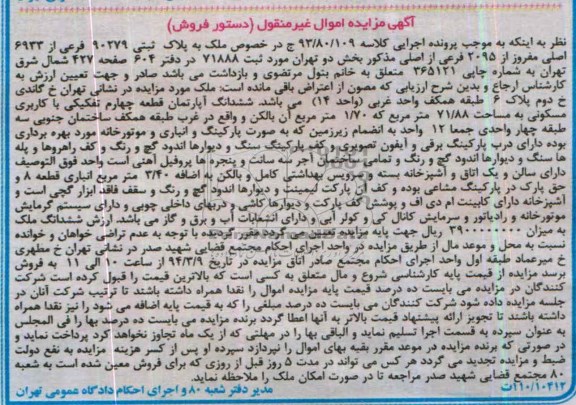 آگهی مزایده اموال غیرمنقول (دستور فروش)
نظر به اینکه به موجب پرونده اجرایی کلاسه 93/80/109 ج در خصوص ملک به پلاک ثبتی 90279 فرعی از 6933
اصلی مفروز از 2095 فرعی از اصلی مذکور بخش دو تهران مورد ثبت 71888 در دفتر 604 صفحه 427 شمال شرق
تهران به شماره چاپی 365121 متعلق به خانم بتول مرتضوی و بازداشت می باشد صادر و جهت تعیین ارزش به
کارشناس ارجاع و بدین شرح ارزیابی که مصون از اعتراض باقی مانده است: ملک مورد مزایده در نشانی تهران خ گاندی
خ دوم پلاک 6 طبقه همکف واحد غربی (واحد 14) می باشد. ششدانگ آپارتمان قطعه چهارم تفکیکی با کاربری
مسکونی به مساحت 71/88 متر مربع که 1/70 متر مربع آن بالکن و واقع در غرب طبقه همکف ساختمان جنوبی سه
طبقه چهار واحدی جمعا 12 واحد به انضمام زیرزمین که به صورت پارکینگ و انباری و موتورخانه مورد بهره برداری
بوده دارای درب پارکینگ برقی و آیفون تصویری و کف پارکینگ سنگ و دیوارها اندود گچ و رنگ و کف راهروها و پله
ها سنگ و دیوارها اندود گچ و رنگ و نمای ساختمان آجر سه سانت و پنجره ها پروفیل آهنی است واحد فوق التوصیف
دارای سالن و یک اتاق و آشپزخانه بسته و سرویس بهداشتی کامل و بالکن به اضافه 3/40 متر مربع انباری قطعه 8 و
حق پارک در پارکینگ مشاعی بوده و کف آن پارکت لیمینت و دیوارها اندود گچ و رنگ و سقف فاقد ابزار گچی است و
آشپزخانه دارای کابینت ام دی اف و پوشش کف پارکت و دیوارها کاشی و دربهای داخلی چوبی و دارای سیستم گرمایش
موتورخانه و رادیاتور و سرمایش کانال کی و کولر آبی و دارای انشعابات آب و برق و گاز می باشد. ارزش ششدانگ ملک
به میزان ریال جهت پایه مزایده تعیین می گردد مقرر گردیده با توجه به عدم تراضی خواهان و خوانده
نسبت به محل و موعد مال از طریق مزایده در واحد اجرای احکام مجتمع قضایی شهید صدر در نشانی تهران خ مطهری
خ میرعماد طبقه اول واحد اجرای احکام مجتمع صدر اتاق مزایده در تاریخ 94/3/9 از ساعت 10 الی 11 به فروش
برسد مزایده از قیمت پایه کارشناسی شروع و مال متعلق به کسی است که بالاترین قیمت را قبول کرده است شرکت
کنندگان در مزایده می بایست ده درصد قیمت پایه مزایده اموال را نقدا همراه داشته باشند تا ترتیب شرکت آنان در
جلسه مزایده داده شود شرکت کنندگان می بایست ده درصد مبلغی را که به قیمت پایه اضافه می شود را نیز نقدا همراه
داشته باشند تا تجویز ارائه پیشنهاد قیمت بالاتر به آنها اعطا گردد برنده مزایده می بایست ده درصد بها را فی المجلس
به عنوان سپرده به قسمت اجرا تسلیم نماید و الباقی بها را در مهلتی که از یک ماه تجاوز نخواهد کرد پرداخت نماید و
در صورتی که برنده مزایده در موعد مقرر بقیه بهای اموال را نپردازد سپرده او پس از کسر هزینه مزایده به نفع دولت
ضبط و مزایده تجدید می گردد هر کس می تواند در مدت 5 روز قبل از روزی که برای فروش معین شده است به شعبه
80 مجتمع قضایی شهید صدر مراجعه تا در صورت امکان ملک را ملاحظه نماید.
110/10412ت مدیر دفتر شعبه 80 و اجرای احکام دادگاه عمومی تهران